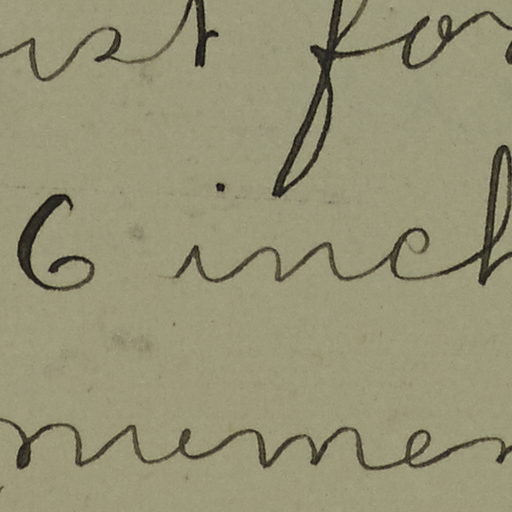 ust for
6 inch
numen